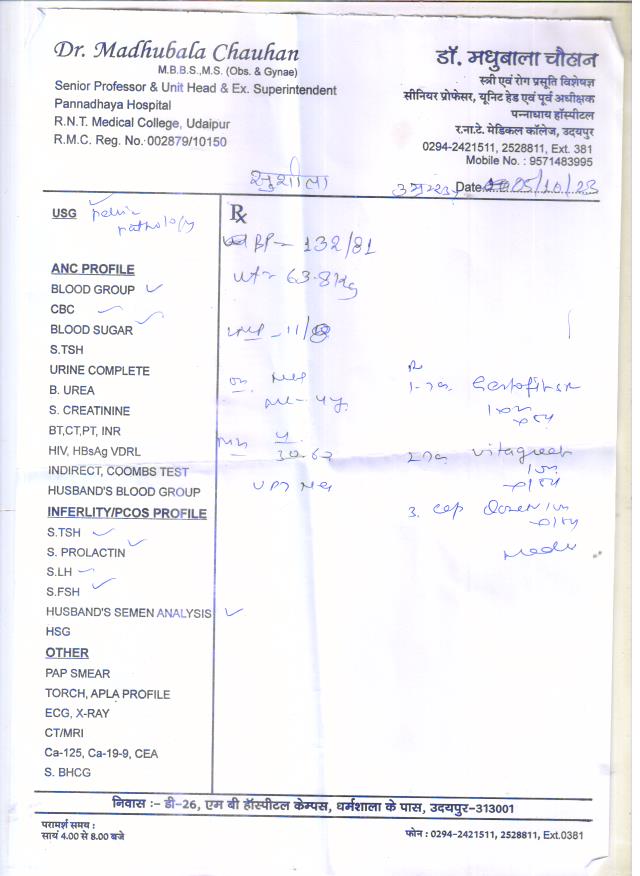 Dr. Madhubala Chauhan
M.B.B.S.,M.S. (Obs. & Gynae)
Senior Professor & Unit Head & Ex. Superintendent
Pannadhaya Hospital
R.N.T. Medical College, Udaipur
R.M.C. Reg. No. 002879/10150
डॉ. मधुबाला चौहान
स्त्री एवं रोग प्रसूति विशेषज्ञ
सीनियर प्रोफेसर, यूनिट हेड एवं पूर्व अधीक्षक
पन्नाधाय हॉस्पीटल
र.ना.टे. मेडिकल कॉलेज, उदयपुर
0294-2421511, 2528811, Ext. 381
Mobile No. : 9571483995
सुशीला
Date 05/10/23
USG pelvic pathology
ANC PROFILE
BLOOD GROUP ✓
CBC ✓
BLOOD SUGAR ✓
S.TSH
URINE COMPLETE
B. UREA
S. CREATININE
BT,CT,PT, INR
HIV, HBsAg VDRL
INDIRECT, COOMBS TEST
HUSBAND'S BLOOD GROUP
INFERLITY/PCOS PROFILE
S.TSH ✓
S. PROLACTIN ✓
S.LH ✓
S.FSH ✓
HUSBAND'S SEMEN ANALYSIS ✓
HSG
OTHER
PAP SMEAR
TORCH, APLA PROFILE
ECG, X-RAY
CT/MRI
Ca-125, Ca-19-9, CEA
S. BHCG
Rx
BP - 132/81
wt - 63.8 kg
LMP - 11/8
30-62
UPT Neg
1.
2. vitagreat
3. cap
निवास :- डी-26, एम बी हॉस्पीटल केम्पस, धर्मशाला के पास, उदयपुर-313001
परामर्श समय :
सायं 4.00 से 8.00 बजे
फोन : 0294-2421511, 2528811, Ext.0381